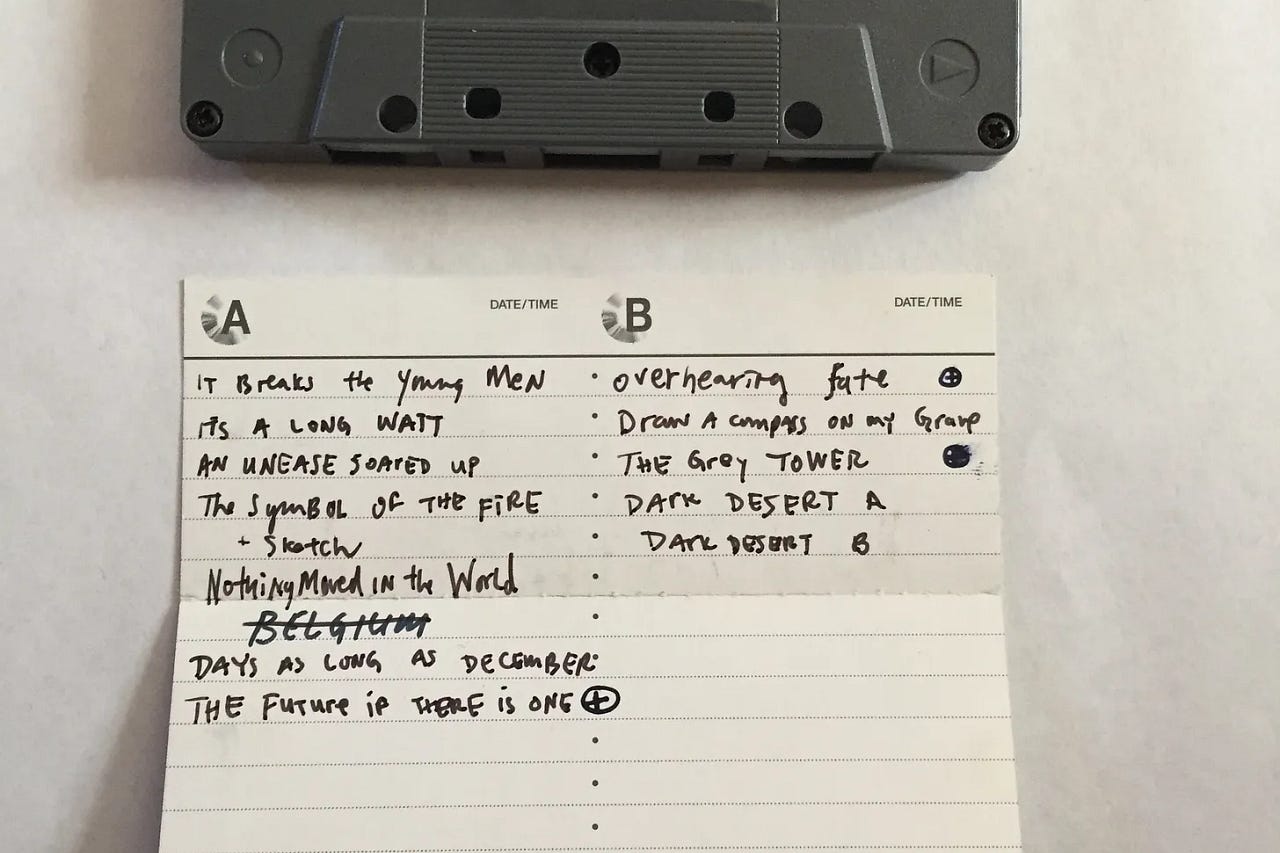 A DATE/TIME
IT BreaKs the Young MeN
ITS A LONG WAIT
AN UNEASE SOARED UP
The SymBOL OF THE FIRE
+ Sketch
Nothing Moved IN the World
BELGIUM
DAYS AS LONG AS DECEMBER
THE FUTURE if THERE is ONE
B DATE/TIME
overhearing fate
Draw A compass ON my Grave
THE Grey TOWER
DARK DESERT A
DARK DESERT B